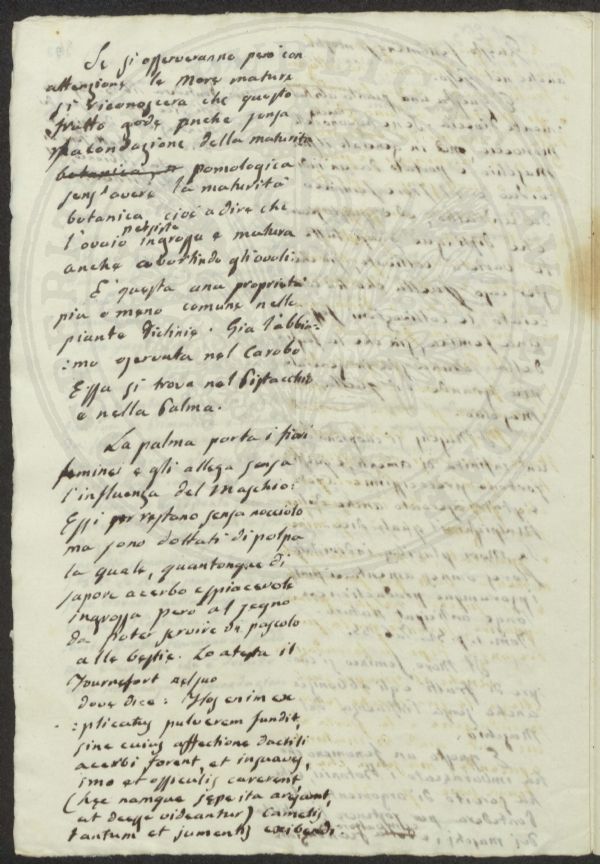 Se si osserveranno però con
attenzione le More mature
si riconoscerà che questo
frutto gode anche senza
fecondazione della maturità
botanica pomologica
senz'avere la maturità
botanica, cioè a dire che
l'ovaio persiste ingrossa e matura
anche abortindo gli ovoli.
E' questa una proprietà
più o meno comune nelle
piante Diclinie. Già l'abbia:
:mo osservata nel Carobo
Essa si trova nel Pistacchio
e nella Palma.
La palma porta i fiori
feminei e gli allega senza
l'influenza del Maschio:
Essi restano senza nocciolo
ma sono dottati di polpa
la quale, quantonque di
sapore acerbo e spiacevole
ingrossa però al segno
da poter servire di pascolo
alle bestie. Lo atesta il
Tournefort nel suo
dove dice: Flos enim ex
:plicatus pulverem fundit,
sine cuius affectione dactili
acerbi forent, et insuaves,
imo et officulis carerent,
(hæc namque sæpe ita aresunt,
ut deesse videantur) camelis
tantum et jumentis exibendi